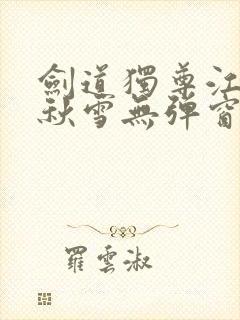 劍道獨尊江
秋雪無彈窗
羅雲淑